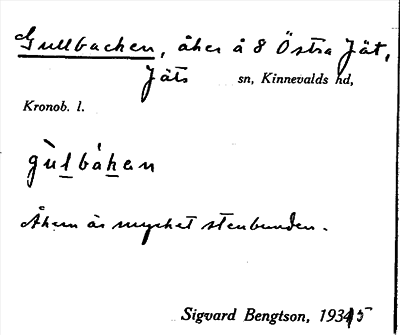 Gullbacken, åker å 8 Östra Jät,
Jäts sn, Kinnevalds hd,
Kronob. l.
gùlbákan
Åkern är mycket stenbunden.
Sigvard Bengtson, 1935